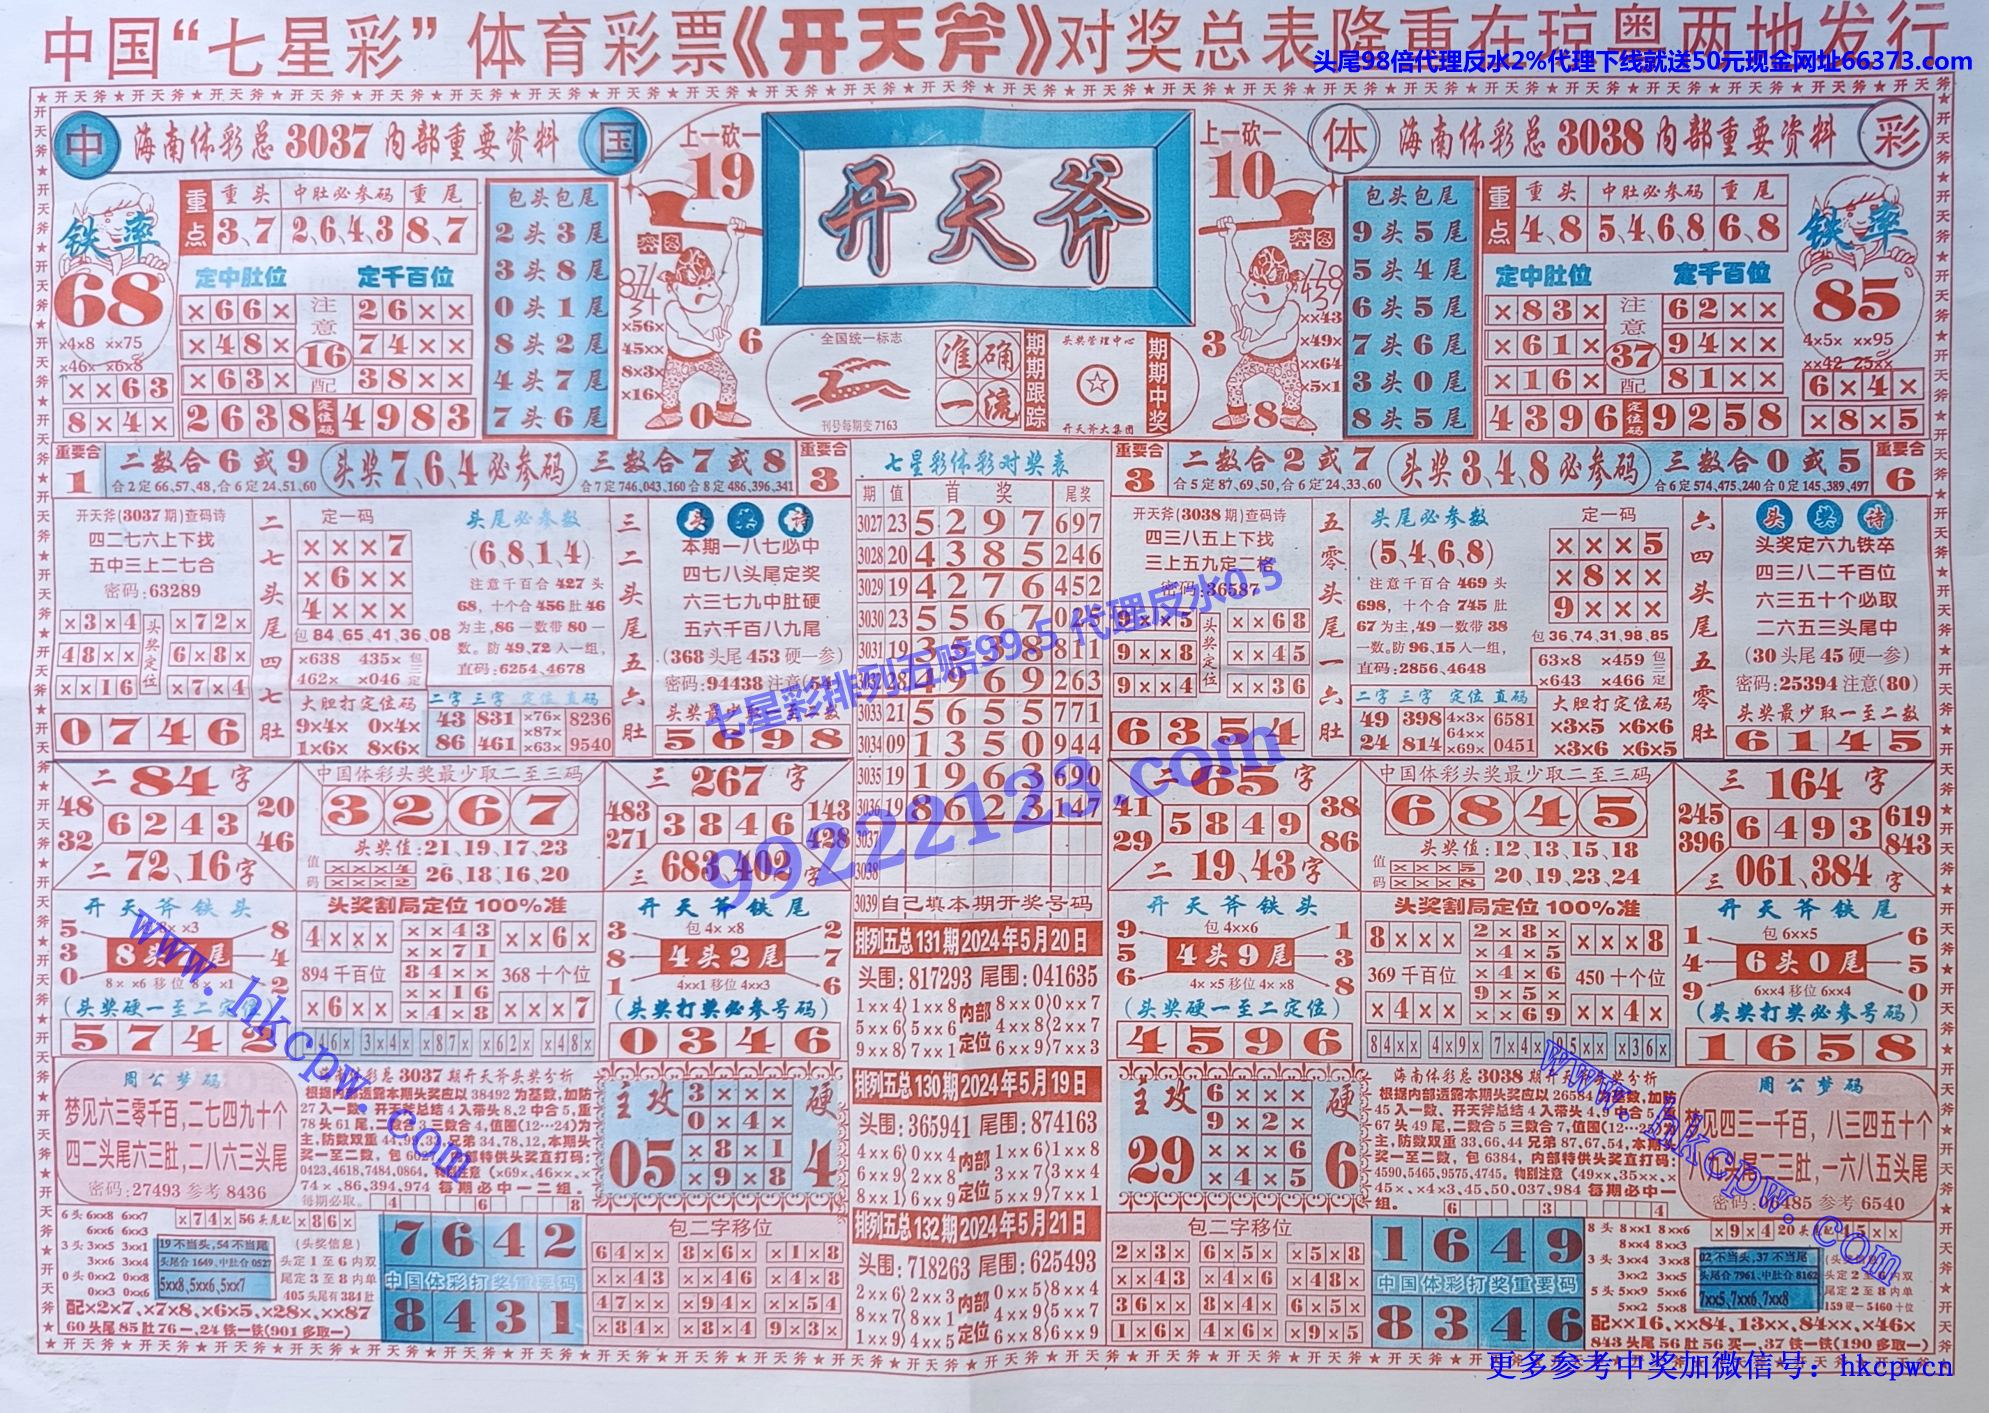 中国“七星彩”体育彩票《开天斧》对奖总表隆重在琼粤两地发行
头尾98倍代理反水2%代理下线就送50元现金网址66373.com
中 海南体彩总3037内部重要资料 国
上一砍一
19
开天斧
上一砍一
10
体 海南体彩总3038内部重要资料 彩
铁率
68
重点
重头 中肚必参码 重尾
3、7 2、6、4、3 8、7
定中肚位 定千百位
×66× 26××
×48× 74××
×63× 38××
注意 16 配
2638 定位码 4983
×4×8 ××75
×46× ×6×8
××63
8×4×
包头包尾
2头3尾
3头8尾
0头1尾
8头2尾
4头7尾
7头6尾
密图
×56×
45××
8×3×
×16×
6
0
全国统一标志
刊号每期变7163
准确一流
期期跟踪
头奖管理中心
开天斧大集团
期期中奖
密图
××43
×49×
××64
×5×1
3
8
包头包尾
9头5尾
5头4尾
6头5尾
7头6尾
3头0尾
8头5尾
重点
重头 中肚必参码 重尾
4、8 5、4、6、8 6、8
定中肚位 定千百位
×83× 62××
×61× 94××
×16× 81××
注意 37 配
4396 定位码 9258
铁率
85
4×5× ××95
××42 25××
6×4×
×8×5
重要合 1
二数合6或9
合2定66,57,48,合6定24,51,60
头奖7、6、4必参码
三数合7或8
合7定746,043,160合8定486,396,341
重要合 3
重要合 3
二数合2或7
合5定87,69,50,合6定24,33,60
头奖3、4、8必参码
三数合0或5
合6定574,475,240合0定145,389,497
重要合 6
开天斧(3037期)查码诗
四二七六上下找
五中三上二七合
密码:63289
×3×4 ×72×
48×× 6×8×
××16 ×7×4
头奖定位
0746
二七头尾四七肚
定一码
×××7
×6××
4×××
包84,65,41,36,08
×638 435×
462× ×046
包三定
大胆打定位码
9×4× 0×4×
1×6× 8×6×
头尾必参数
(6,8,1,4)
注意千百合427头
68，十个合456肚46
为主,86一数带80一
数。防49,72人一组,
直码:6254,4678
二字 三字 定位 直码
43 831 ×76× 8236
×87×
86 461 ×63× 9540
三二头尾五六肚
头奖诗
本期一八七必中
四七八头尾定奖
六三七九中肚硬
五六千百八九尾
(368头尾453硬一参)
5698
七星彩体彩对奖表
期 值 首奖 尾奖
3027 23 5297 697
3028 20 4385 246
3029 19 4276 452
3030 23 5567 025
3031 19 3538 811
3032 28 4969 263
3033 21 5655 771
3034 09 1350 944
3035 19 1963 690
3036 19 8623 147
3037
3038
3039 自己填本期开奖号码
七星彩排列五赔99.5 代理反水0.5
99222123.com
开天斧(3038期)查码诗
四三八五上下找
三上五九定二格
密码:36587
9××5 ××68
9××8 ××45
9××4 ××36
头奖定位
6354
五零头尾一六肚
头尾必参数
(5,4,6,8)
注意千百合469头
698，十个合745肚
67为主,49一数带38
一数。防96,15人一组,
直码:2856,4648
二字 三字 定位 直码
49 398 4×3× 6581
64××
24 814 ×69× 0451
定一码
×××5
×8××
9×××
包36,74,31,98,85
63×8 ×459
×643 ×466
包三定
大胆打定位码
×3×5 ×6×6
×3×6 ×6×5
六四头尾五零肚
头奖诗
头奖定六九铁卒
四三八二千百位
六三五十个必取
二六五三头尾中
(30头尾45硬一参)
密码:25394注意(80)
头奖最少取一至二数
6145
二84字
48 20
6243
32 46
二72、16字
中国体彩头奖最少取二至三码
3267
头奖值:21、19、17、23
26、18、16、20
值码 ×××4
×××2
三267字
483 143
3846
271 428
三683、402字
二65字
41 38
5849
29 86
二19、43字
中国体彩头奖最少取二至三码
6845
头奖值:12、13、15、18
20、19、23、24
值码 ×××5
×××8
三164字
245 619
6493
396 843
三061、384字
开天斧铁头
5 8
3 4
0 2
(头奖硬一至二定位)
5742
头奖割局定位100%准
4××× ××43 ××6×
××71
894千百位 84×× 368十个位
××16
×6×× ×4×8 ×××7
开天斧铁尾
包4××8
3 2
8 4头2尾 7
1 6
4××1移位4××3
(头奖打奖必参号码)
0346
排列五总131期2024年5月20日
头围:817293尾围:041635
1××4)1××8 内部 8××0)0××7
5××6)5××6 4××8)2××7
9××8)7××1 定位 6××9)7××3
排列五总130期2024年5月19日
头围:365941尾围:874163
4××6)0××4 内部 1××6)1××8
6××9)2××8 3××7)3××4
8××1)6××9 定位 5××9)7××1
排列五总132期2024年5月21日
头围:718263尾围:625493
2××6)2××3 内部 0××5)8××4
8××7)8××1 4××7)9××4
1××9)4××5 定位 6××8)6××9
开天斧铁头
包4××6
9 1
5 4头9尾 3
6 8
4××5移位4××8
(头奖硬一至二定位)
4596
头奖割局定位100%准
8××× 2×8× ×××8
×4×5
369千百位 ×4×6 450十个位
9×5×
×4×× ××69 ××4×
84×× 4×9×
开天斧铁尾
包6××5
1 6
4 6头0尾 5
9 0
6××4移位6××4
(头奖打奖必参号码)
1658
www.hkcpw.com
周公梦码
梦见六三零千百,二七四九十个
四二头尾六三肚,二八六三头尾
密码:27493参考8436
海南体彩总3037期开天斧头奖分析
主攻 硬
3×××
0×4×
×8×1
×9×8
05 4
主攻 硬
6×××
9×2×
×××6
×4×5
29 6
海南体彩总3038期开天斧头奖分析
周公梦码
梦见四三一千百，八三四五十个
www.hkcpw.com
×74× 56头尾配 ×86×
19不当头,54不当尾
头尾合1649,中肚合0527
5××8,5××6,5××7
(头奖信息)
头定1至6内双
尾定3至8内单
405头尾有384肚
配×2×7、×7×8、×6×5、×28×、××87
60头尾85肚76一、24铁一铁(901多取一)
7642
中国体彩打奖重要码
8431
包二字移位
64×× 8×6× ×1×8
××43 ×46× ××46
47×× ×94× ××54
×84× ×8×4 9×3×
包二字移位
2×3× 6×5× ×5×8
××43 ×4×6 ×48×
36×× 8×4× 6×5×
1×6× 4×6× ×9×5
1649
中国体彩打奖重要码
8346
02不当头,37不当尾
头尾合7961,中肚合8162
7××5,7××6,7××8
配××16、××84、13××、84××、××46×
843头尾56肚56买一、37铁一铁(190多取一)
更多参考中奖加微信号：hkcpwcn